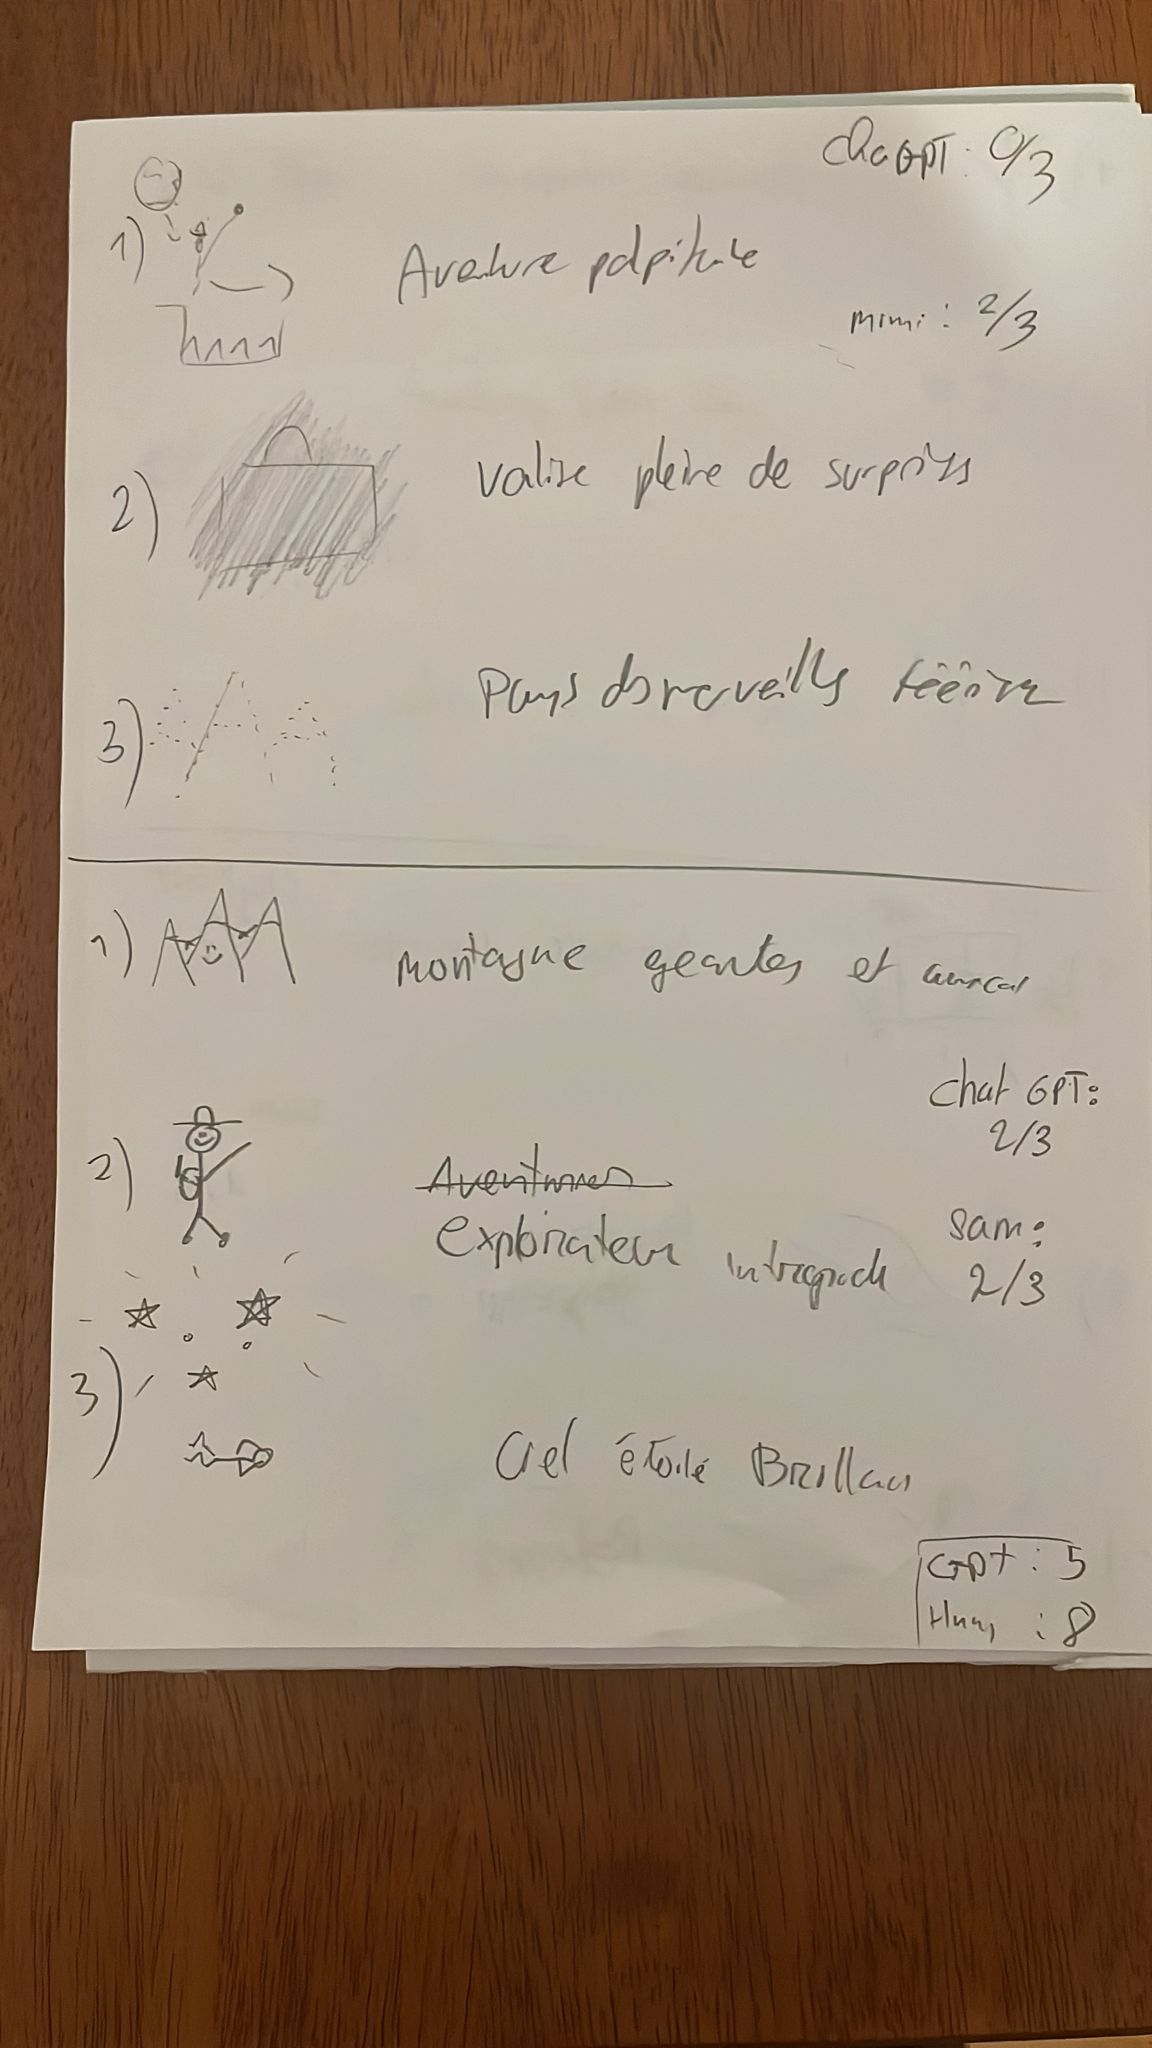 ChaGPT: 0/3
1) Aventure palpitante
mimi: 2/3
2) valise pleine de surprises
3) Pays ds merveilles
1) montagne geantes et
Chat GPT:
2/3
2) Aventures
explorateur
Sam:
2/3
3) Ciel étoilé Brillant
GPT: 5
: 8